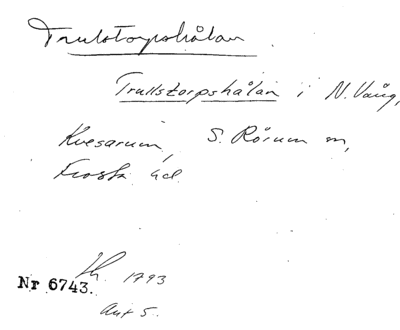 Trulstorpshålan
Trullstorpshålan i N. Vång,
Kvesarum, S. Rörum sn,
Frosta hd
1793
Nr 6743.
Akt 5.